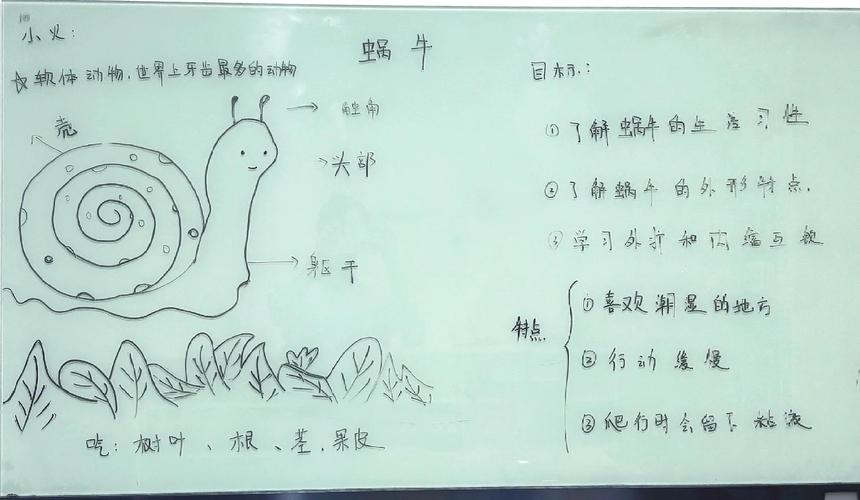 小火:
蜗牛
☆软体动物,世界上牙齿最多的动物
壳
触角
头部
躯干
吃:树叶、根、茎、果皮
目标:
①了解蜗牛的生活习性
②了解蜗牛的外形特点.
③学习外扩和内缩互
特点
①喜欢潮湿的地方
②行动缓慢
③爬行时会留下粘液